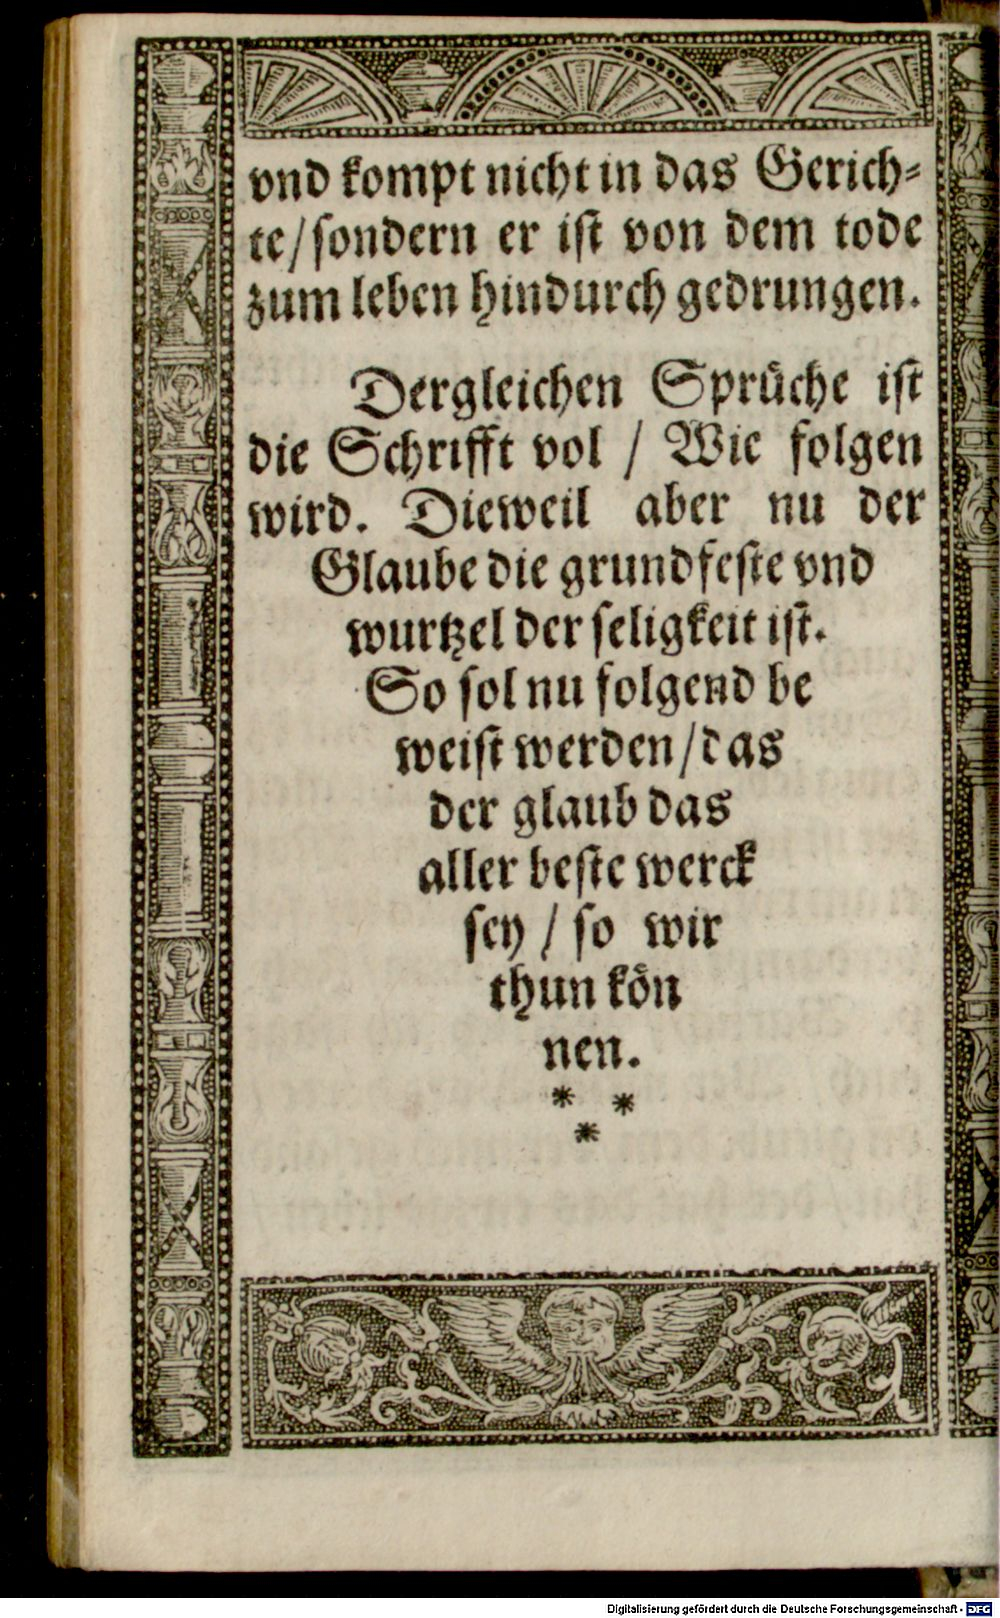 vnd kompt nicht in das Gerich-
te/sondern er ist von dem tode
zum leben hindurch gedrungen.
Dergleichen Sprüche ist
die Schrifft vol / Wie folgen
wird. Dieweil aber nu der
Glaube die grundfeste vnd
wurtzel der seligkeit ist.
So sol nu folgend be
weist werden/das
der glaub das
aller beste werck
sey / so wir
thun kön
nen.
* *
*
Digitalisierung gefördert durch die Deutsche Forschungsgemeinschaft - DFG